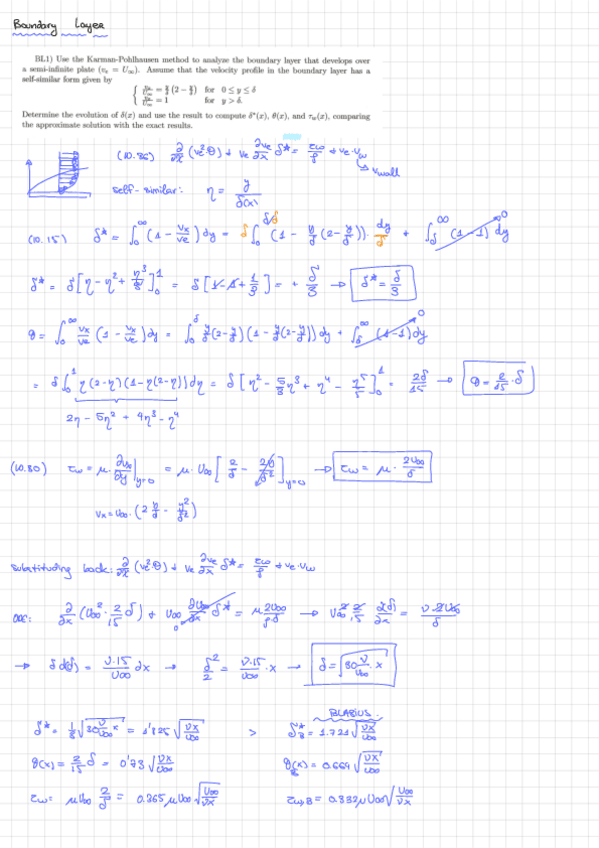 Boundary Layer
BL1) Use the Karman-Pohlhausen method to analyze the boundary layer that develops over
a semi-infinite plate (vₑ = U∞). Assume that the velocity profile in the boundary layer has a
self-similar form given by
{ vₓ/U∞ = y/δ (2 − y/δ) for 0 ≤ y ≤ δ
vₓ/U∞ = 1 for y > δ.
Determine the evolution of δ(x) and use the result to compute δ*(x), θ(x), and τw(x), comparing
the approximate solution with the exact results.
(10.86) ∂/∂x (vₑ²·θ) + vₑ ∂vₑ/∂x δ* = τω/ρ + vₑ·vw
↳ vwall
self-similar: η = y/δ(x)
(10.15) δ* = ∫₀^∞ (1 − vx/ve) dy = δ∫₀^δ/δ (1 − y/δ (2−y/δ))· dy/δ + ∫δ^∞ (1−1) dy → 0
δ* = δ[η − η² + η³/3]₀¹ = δ[1−1+1/3] = + δ/3 → δ* = δ/3
θ = ∫₀^∞ vx/ve (1 − vx/ve) dy = ∫₀^δ y/δ(2−y/δ)(1 − y/δ(2−y/δ)) dy + ∫δ^∞ (1−1) dy → 0
= δ∫₀¹ η(2−η)(1−η(2−η)) dη = δ[η² − 5/3 η³ + η⁴ − η⁵/5]₀¹ = 2δ/15 → θ = 2/15·δ
2η − 5η² + 4η³ − η⁴
(10.80) τω = μ· ∂vx/∂y |y=0 = μ·U∞ [2/δ − 2y/δ²]y=0 → τω = μ· 2U∞/δ
vx = U∞·(2 y/δ − y²/δ²)
substituding back: ∂/∂x (ve²·θ) + ve ∂ve/∂x δ* = τω/ρ + ve·vw
∂/∂x (U∞²· 2/15 δ) + U∞ ∂U∞/∂x δ* = μ2U∞/ρ·δ → U∞² 2/15 ∂(δ)/∂x = ν·2U∞/δ
→ δ d(δ) = ν·15/U∞ dx → δ²/2 = ν·15/U∞ ·x → δ = √(30 ν/U∞ ·x)
BLASIUS
δ* = 1/3 √(30 ν/U∞ x) = 1'825 √(νx/U∞) > δ*B = 1.721 √(νx/U∞)
θ(x) = 2/15 δ = 0'73 √(νx/U∞) θB(x) = 0.664 √(νx/U∞)
τω = μU∞ 2/δ = 0.365 μU∞ √(U∞/νx) τω,B = 0.332 μU∞ √(U∞/νx)